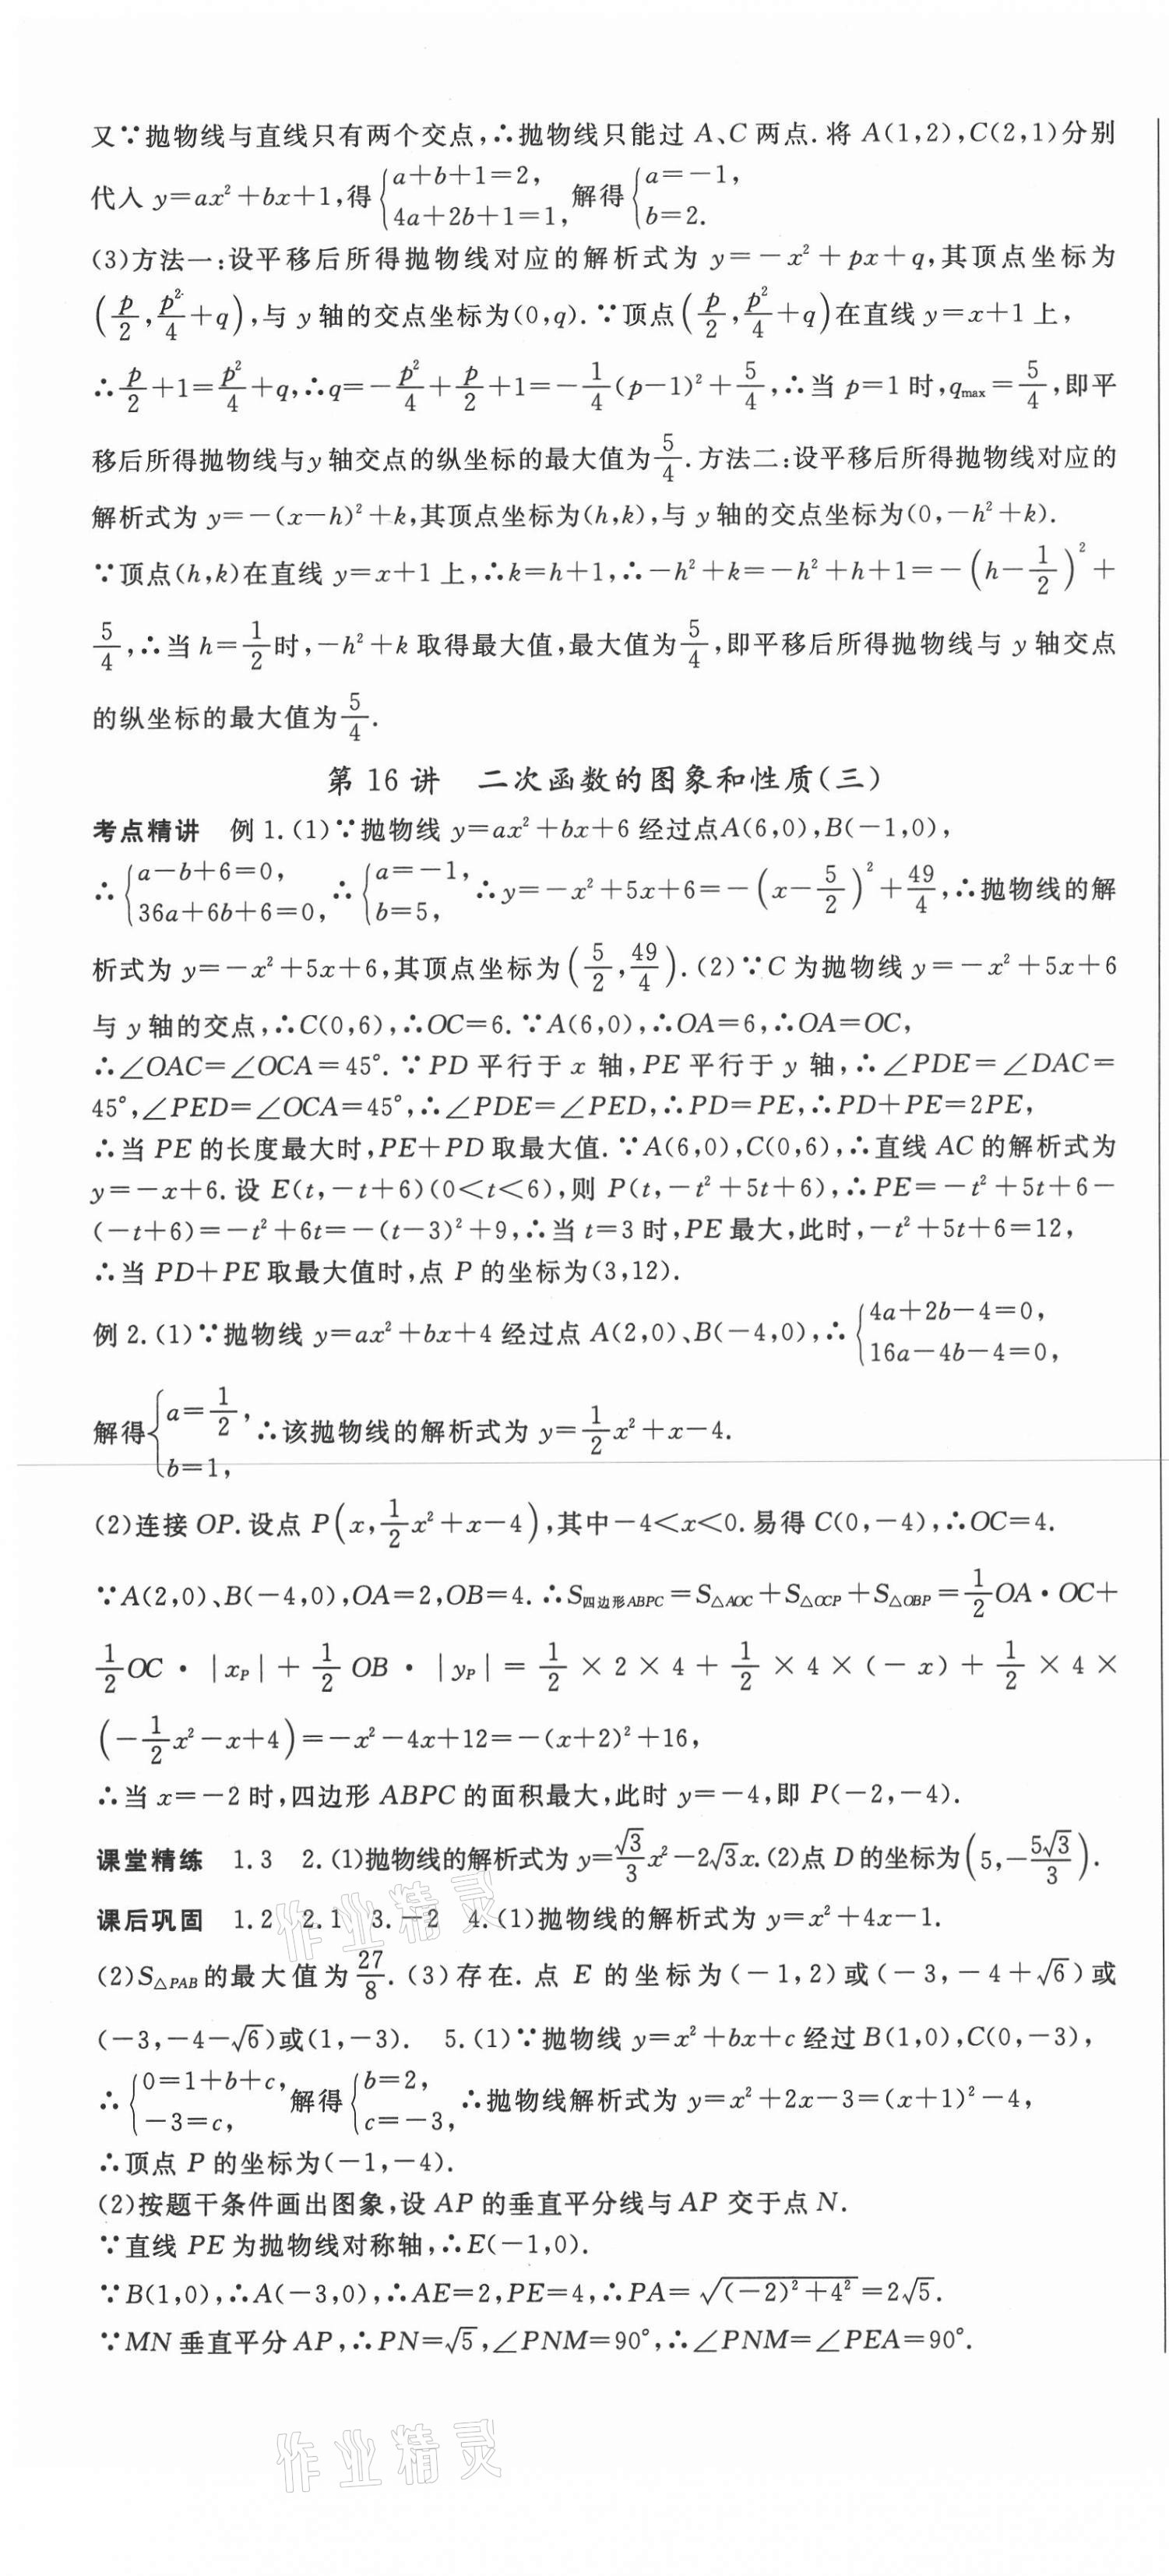 又∵抛物线与直线只有两个交点,∴抛物线只能过 A、C 两点. 将 A(1,2),C(2,1)分别
代入 y=ax²+bx+1,得{a+b+1=2, 4a+2b+1=1, 解得{a=-1, b=2.
(3)方法一:设平移后所得抛物线对应的解析式为 y=-x²+px+q,其顶点坐标为
(p/2,p²/4+q),与 y 轴的交点坐标为(0,q). ∵顶点(p/2,p²/4+q)在直线 y=x+1 上,
∴p/2+1=p²/4+q,∴q=-p²/4+p/2+1=-1/4(p-1)²+5/4,∴当 p=1 时,qmax=5/4,即平
移后所得抛物线与y 轴交点的纵坐标的最大值为5/4. 方法二:设平移后所得抛物线对应的
解析式为 y=-(x-h)²+k,其顶点坐标为(h,k),与 y 轴的交点坐标为(0,-h²+k).
∵顶点(h,k)在直线 y=x+1 上,∴k=h+1,∴-h²+k=-h²+h+1=-(h-1/2)²+
5/4,∴当 h=1/2时,-h²+k 取得最大值,最大值为5/4,即平移后所得抛物线与 y 轴交点
的纵坐标的最大值为5/4.
第 16 讲 二次函数的图象和性质(三)
考点精讲 例 1. (1)∵抛物线 y=ax²+bx+6 经过点A(6,0),B(-1,0),
∴{a-b+6=0, 36a+6b+6=0, ∴{a=-1, b=5, ∴y=-x²+5x+6=-(x-5/2)²+49/4,∴抛物线的解
析式为 y=-x²+5x+6,其顶点坐标为(5/2,49/4). (2)∵C 为抛物线 y=-x²+5x+6
与 y 轴的交点,∴C(0,6),∴OC=6. ∵A(6,0),∴OA=6,∴OA=OC,
∴∠OAC=∠OCA=45°. ∵PD 平行于 x 轴,PE 平行于 y 轴,∴∠PDE=∠DAC=
45°,∠PED=∠OCA=45°,∴∠PDE=∠PED,∴PD=PE,∴PD+PE=2PE,
∴当 PE 的长度最大时,PE+PD 取最大值. ∵A(6,0),C(0,6),∴直线 AC 的解析式为
y=-x+6. 设 E(t,-t+6)(0<t<6),则 P(t,-t²+5t+6),∴PE=-t²+5t+6-
(-t+6)=-t²+6t=-(t-3)²+9,∴当 t=3 时,PE 最大,此时,-t²+5t+6=12,
∴当 PD+PE 取最大值时,点 P 的坐标为(3,12).
例 2. (1)∵抛物线 y=ax²+bx+4 经过点 A(2,0)、B(-4,0),∴{4a+2b-4=0, 16a-4b-4=0,
解得{a=1/2, b=1, ∴该抛物线的解析式为 y=1/2x²+x-4.
(2)连接 OP. 设点 P(x,1/2x²+x-4),其中-4<x<0. 易得 C(0,-4),∴OC=4.
∵A(2,0)、B(-4,0),OA=2,OB=4. ∴S四边形ABPC=S△AOC+S△OCP+S△OBP=1/2OA·OC+
1/2OC·|xP|+1/2OB·|yP|=1/2×2×4+1/2×4×(-x)+1/2×4×
(-1/2x²-x+4)=-x²-4x+12=-(x+2)²+16,
∴当 x=-2 时,四边形 ABPC 的面积最大,此时 y=-4,即 P(-2,-4).
课堂精练 1. 3 2. (1)抛物线的解析式为 y=√3/3x²-2√3x. (2)点 D 的坐标为(5,-5√3/3).
课后巩固 1. 2 2. 1 3. -2 4. (1)抛物线的解析式为 y=x²+4x-1.
(2)S△PAB的最大值为27/8. (3)存在. 点 E 的坐标为(-1,2)或(-3,-4+√6)或
(-3,-4-√6)或(1,-3). 5. (1)∵抛物线 y=x²+bx+c 经过 B(1,0),C(0,-3),
∴{0=1+b+c, -3=c, 解得{b=2, c=-3, ∴抛物线解析式为 y=x²+2x-3=(x+1)²-4,
∴顶点 P 的坐标为(-1,-4).
(2)按题干条件画出图象,设 AP 的垂直平分线与 AP 交于点 N.
∵直线 PE 为抛物线对称轴,∴E(-1,0).
∵B(1,0),∴A(-3,0),∴AE=2,PE=4,∴PA=√((-2)²+4²)=2√5.
∵MN 垂直平分 AP,∴PN=√5,∠PNM=90°,∴∠PNM=∠PEA=90°.
作业精灵
作业精灵